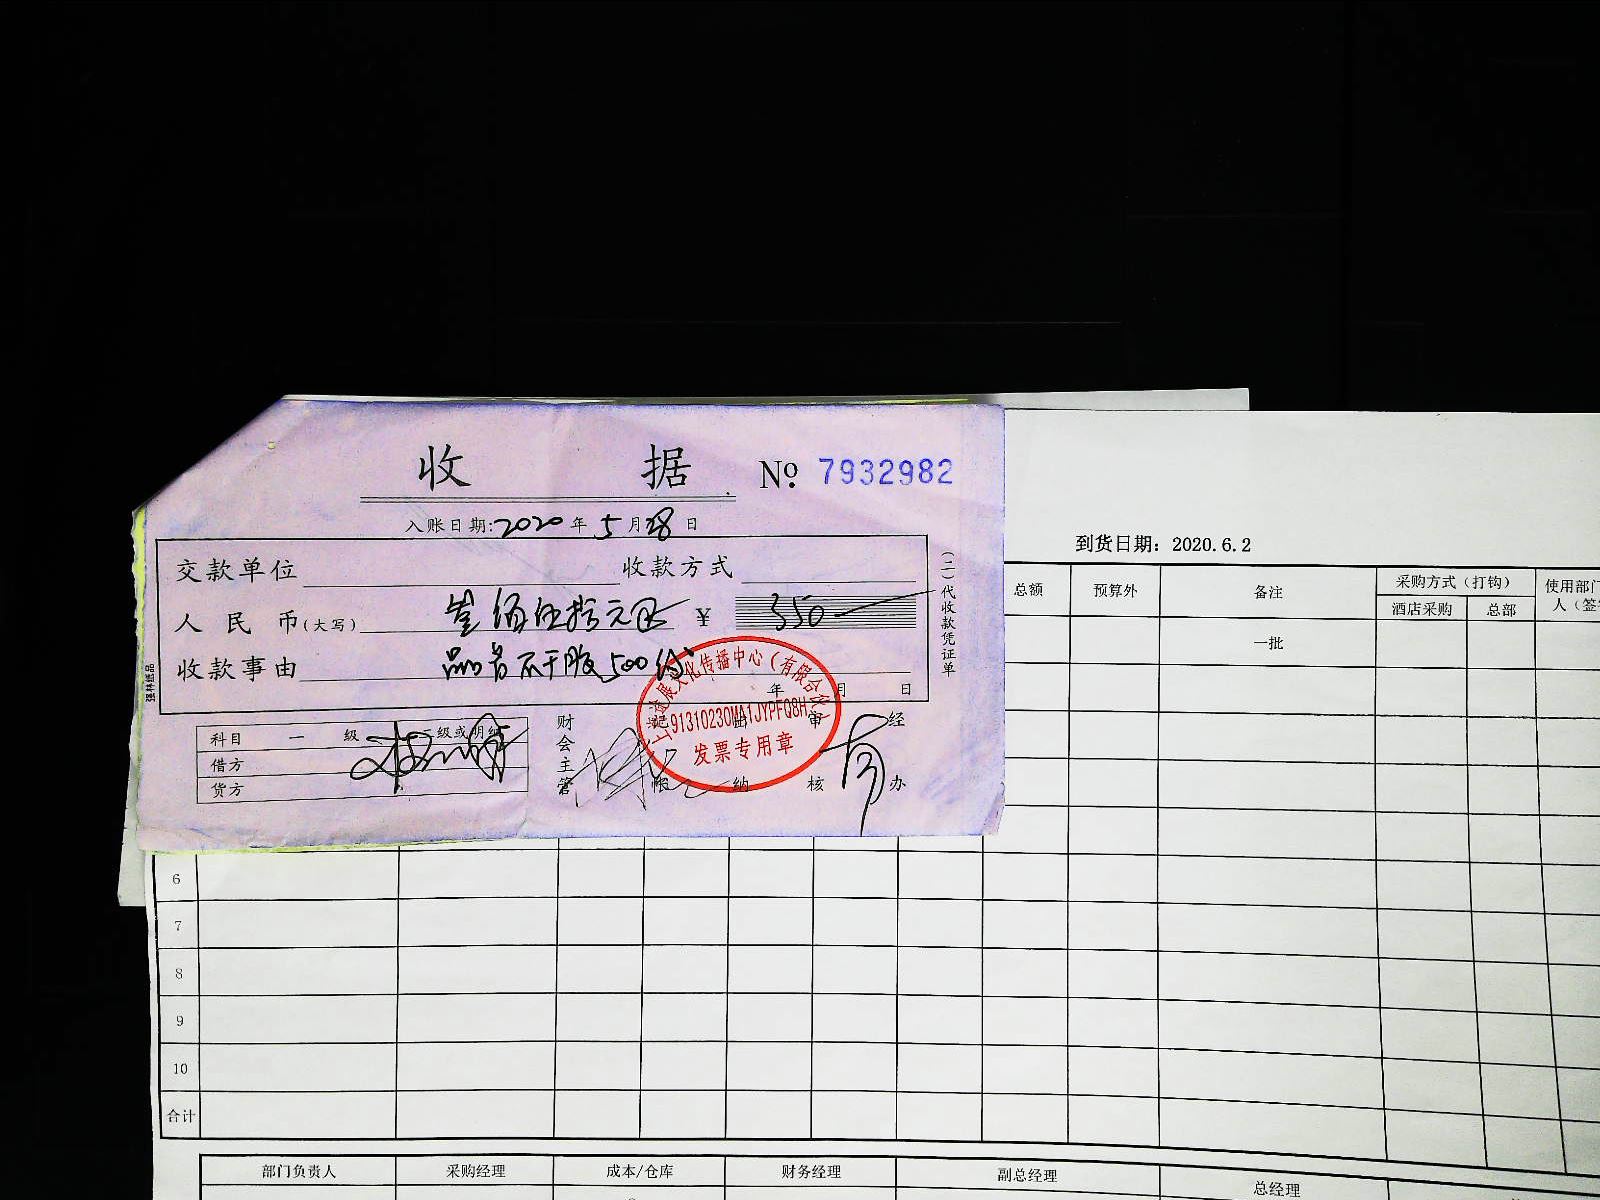 收 据 № 7932982
入账日期:2020年5月28日
交款单位 收款方式
人民币(大写) 叁佰伍拾元正 ¥ 350
收款事由 不干胶500份
年 月 日
(二)代收款凭证单
强林纸品
文化传播中心(有限合伙)
91310230MA1JYPFQ8H
发票专用章
科目 一 级 二级或明细
借方
贷方
财会主管 记帐 出纳 审核 经办
到货日期: 2020.6.2
总额 预算外 备注 采购方式(打钩) 使用部门
酒店采购 总部 人(签
一批
6
7
8
9
10
合计
部门负责人 采购经理 成本/仓库 财务经理 副总经理 总经理